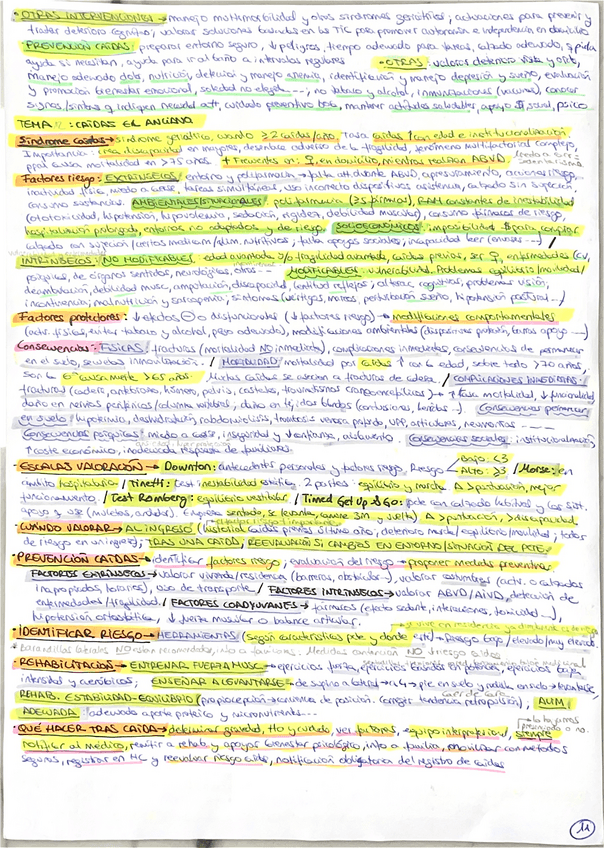 ·OTRAS INTERVENCIONES → manejo multimorbilidad y otros síndromes geriátricos; actuaciones para prevenir y
tratar deterioro cognitivo; valorar soluciones basadas en las TIC para promover autonomía e independencia en domicilio
PREVENCIÓN CAÍDAS: preparar entorno seguro, ↓ peligros, tiempo adecuado para tareas, calzado adecuado,
ayuda si necesitan, ayuda para ir al baño a intervalos regulares ·OTRAS: valorar deterioro vista y oído,
manejo adecuado dolor, nutrición, detección y manejo anemia, identificación y manejo depresión y sueño, evaluación
y promoción bienestar emocional, soledad no elegida --; no tabaco y alcohol, inmunizaciones (vacunas), conocer
signos/síntomas q indiquen necesidad att, cuidado preventivo, mantener actitudes saludables, apoyo social, psico
TEMA : CAÍDAS EN ANCIANO
Síndrome caídas → síndrome geriátrico, cuando ≥2 caídas/año. Tasa caídas ↑ con edad e institucionalización
Importancia: crea discapacidad en mayores, desenlace adverso de la fragilidad, fenómeno multifactorial complejo,
causa mortalidad en >75 años + Frecuentes en: ♀, en domicilio, mientras realizan ABVD
Factores riesgo: EXTRÍNSECOS: entorno y polifarmacia → falta att durante ABVD, apresuramiento, acciones riesgo,
inactividad física, miedo a caerse, tareas simultáneas, uso incorrecto dispositivos asistencia, calzado sin sujeción,
consumo sustancias. AMBIENTALES/SITUACIONALES: polifarmacia (≥5 fármacos), RAM causantes de inestabilidad
(ototoxicidad, hipotensión, hipovolemia, sedación, rigidez, debilidad muscular), consumo fármacos de riesgo,
hospitalización prolongada, entornos no adaptados y de riesgo SOCIOECONÓMICOS: imposibilidad $ para comprar
calzado con sujeción/ciertos medicam/alim. nutritivos, falta apoyos sociales, incapacidad leer (envases --) /
INTRÍNSECOS NO MODIFICABLES: edad avanzada o fragilidad avanzada, caídas previas, ser ♀, enfermedades (cv,
psíquicas, de órganos sentidos, neurológicas, otras -- MODIFICABLES: vulnerabilidad. Problemas equilibrio/movilidad/
deambulación, debilidad musc, amputación, discapacidad, lentitud reflejos; alterac. cognitivas; problemas visión;
incontinencia; malnutrición y sarcopenia; síntomas (vértigos, mareos, perturbación sueño, hipotensión postural --)
Factores protectores: ↓ efectos ⊖ o disfuncionales (↓ factores riesgo) → modificaciones comportamentales
(activ. físicas, evitar tabaco y alcohol, peso adecuado), modificaciones ambientales (dispositivos protección, barras apoyo --)
Consecuencias: FÍSICAS: fracturas (mortalidad NO inmediata), complicaciones inmediatas, consecuencias de permanecer
en el suelo, secuelas inmovilización. / MORTALIDAD: mortalidad por caídas ↑ con la edad, sobre todo >70 años,
son la 6ª causa muerte >65 años. Muchas caídas se asocian a fracturas de cadera. / COMPLICACIONES INMEDIATAS:
fracturas (cadera, antebrazo, húmero, pelvis, costales, traumatismos craneoencefálicos) → ↑ tasa mortalidad, ↓ funcionalidad
daño en nervios periféricos/columna vertebral, daño en tej. blandos (contusiones, heridas --). Consecuencias permanecer
en suelo: hipotermia, deshidratación, rabdomiolisis, trombosis venosa profunda, UPP, articulares, neumonías ----
Consecuencias psíquicas: miedo a caerse, inseguridad y confianza, aislamiento. Consecuencias sociales: institucionalización
↑ coste económico, inadecuada respuesta de familiares.
ESCALAS VALORACIÓN → Downton: antecedentes personales y factores riesgo. Riesgo Bajo: <3 Alto: ≥3 / Morse: en
ámbito hospitalario / Tinetti: test inestabilidad estática. 2 partes: equilibrio y marcha A > puntuación, mejor
funcionamiento. / Test Romberg: equilibrio vestibular / Timed Get Up & Go: pcte con calzado habitual y sus sist.
apoyo y use (muletas, andador). Empieza sentado, se levanta, camina 3m y vuelta) A > puntuación, > discapacidad.
CUÁNDO VALORAR → AL INGRESO (historial caídas previas último año, deterioro marcha/equilibrio/movilidad; todos
de riesgo en un ingreso), TRAS UNA CAÍDA, REEVALUACIÓN SI CAMBIOS EN ENTORNO/SITUACIÓN DEL PCTE.
·PREVENCIÓN CAÍDAS → identificar factores riesgo, evaluación del riesgo → proponer medidas preventivas
FACTORES EXTRÍNSECOS → valorar vivienda/residencia (barreras, obstáculos --), valorar costumbres (activ. o calzados
inapropiados, horarios), uso de transporte / FACTORES INTRÍNSECOS → valorar ABVD/AIVD, detección de
enfermedades/fragilidad / FACTORES COADYUVANTES → fármacos (efecto sedante, interacciones, toxicidad --),
hipotensión ortostática, ↓ fuerza muscular o balance articular.
·IDENTIFICAR RIESGO → HERRAMIENTAS (según características pcte y donde esté) → Riesgo bajo/elevado/muy elevado.
*barandillas laterales NO están recomendadas, info a familiares. Medidas contención NO ↓ riesgo caídas
·REHABILITACIÓN → ENTRENAR FUERZA MUSC → ejercicios fuerza, ejercicios basados en potencia, ejercicios baja
intensidad y aeróbicos; ENSEÑAR A LEVANTARSE → de supino a lateral → → pie en suelo y rodilla → levantarse,
REHAB. ESTABILIDAD-EQUILIBRIO (propiocepción → conciencia de posición. Corregir tendencia retropulsión), ALIM.
ADECUADA: adecuado aporte proteico y micronutrientes---
·QUÉ HACER TRAS CAÍDA → determinar gravedad, tto y cuidado, ver factores, equipo interprofesional, siempre
notificar al médico, remitir a rehab y apoyar bienestar psicológico, info a familia, movilizar con métodos
seguros, registrar en HC y reevaluar riesgo caída, notificación obligatoria del registro de caídas
12